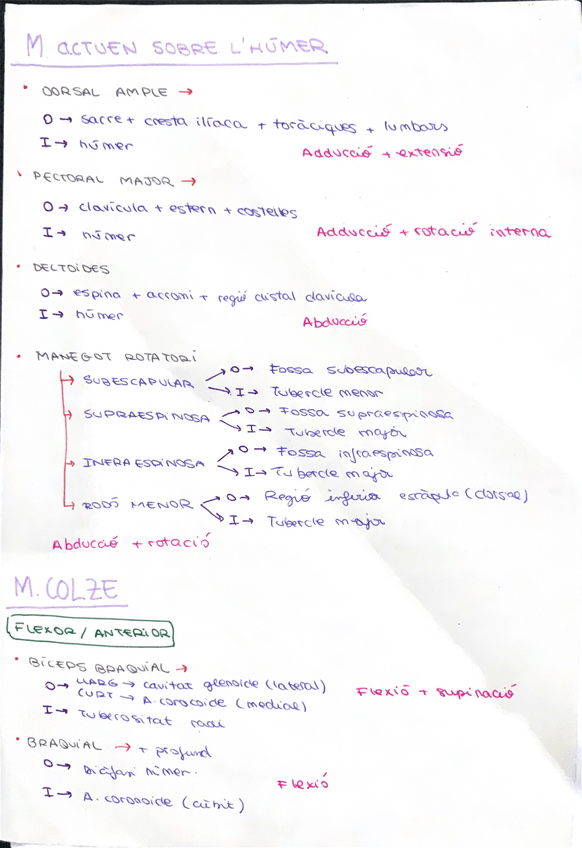 M ACTUEN SOBRE L'HÚMER
• DORSAL AMPLE →
O → sacre + cresta ilíaca + toràciques + lumbars
I → húmer
Adducció + extensió
• PECTORAL MAJOR →
O → clavícula + estern + costelles
I → húmer
Adducció + rotació interna
• DELTOIDES
O → espina + acromi + regió distal clavícula
I → húmer
Abducció
• MANEGOT ROTATORI
→ SUBESCAPULAR
O → Fossa subescapular
I → Tubercle menor
→ SUPRAESPINOSA
O → Fossa supraespinosa
I → Tubercle major
→ INFRAESPINOSA
O → Fossa infraespinosa
I → Tubercle major
→ RODÓ MENOR
O → Regió inferior escàpula (dorsal)
I → Tubercle major
Abducció + rotació
M. COLZE
FLEXOR / ANTERIOR
• BÍCEPS BRAQUIAL →
O → LLARG → cavitat glenoide (lateral)
CURT → A. coracoide (medial)
Flexió + supinació
I → Tuberositat radi
• BRAQUIAL → + profund
O → húmer.
Flexió
I → A. coronoide (cúbit)